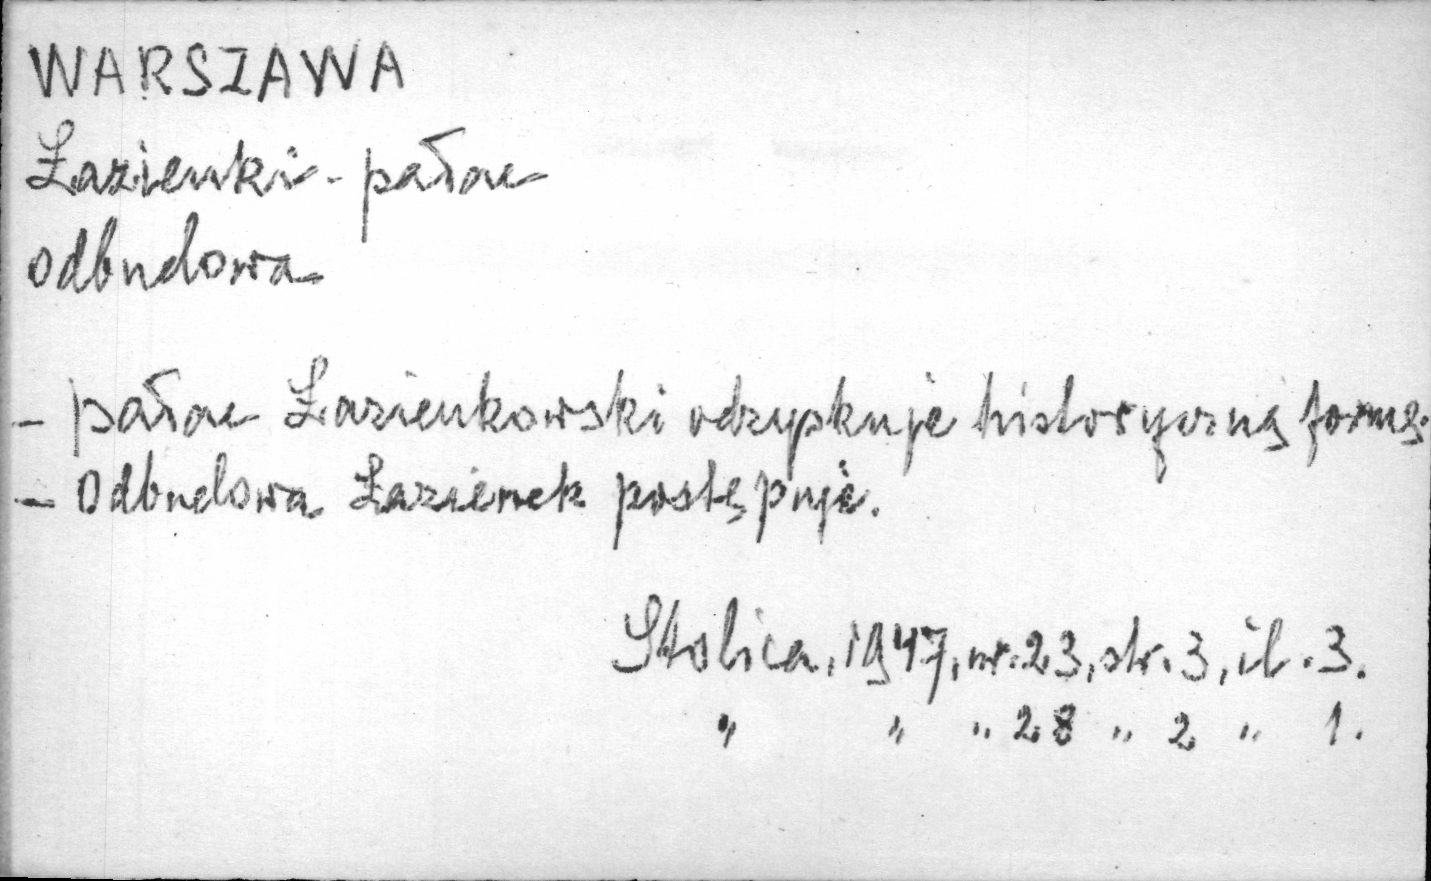 WARSZAWA
Łazienki - pałac
odbudowa
- pałac Łazienkowski odzyskuje historyczną formę.
- Odbudowa Łazienek postępuje.
Stolica, 1947, nr. 23, str. 3, il. 3.
" " " 28 " 2 " 1.